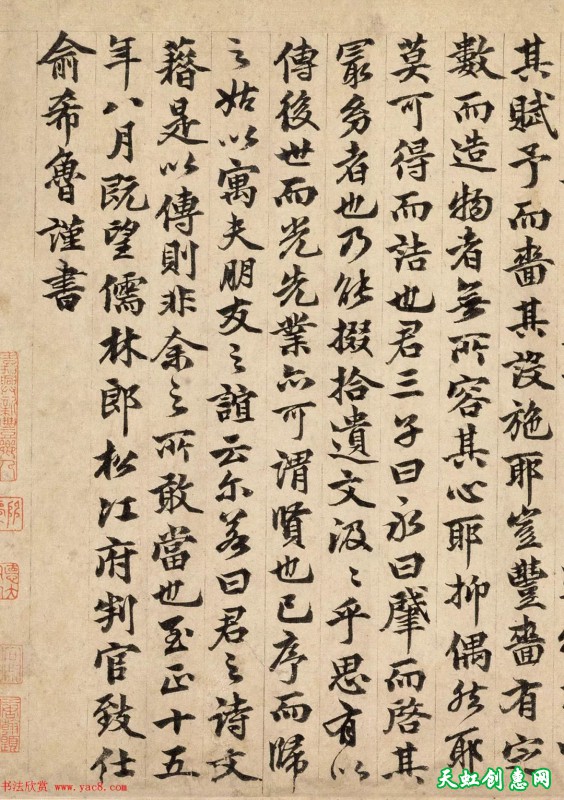 其賦予而嗇其設施耶豈豐嗇有定
數而造物者無所容其心耶抑偶然耶
莫可得而詰也君三子曰永曰肇而啓其
最务者也乃能掇拾遺文汲〻乎思有以
傳後世而光先業亦可謂賢也已序而歸
之姑以寓夫朋友之誼云尔若曰君之詩文
藉是以傳則非余之所敢當也至正十五
年八月既望儒林郎松江府判官致仕
俞希魯謹書
书法欣赏 www.yac8.com
天虹创惠网